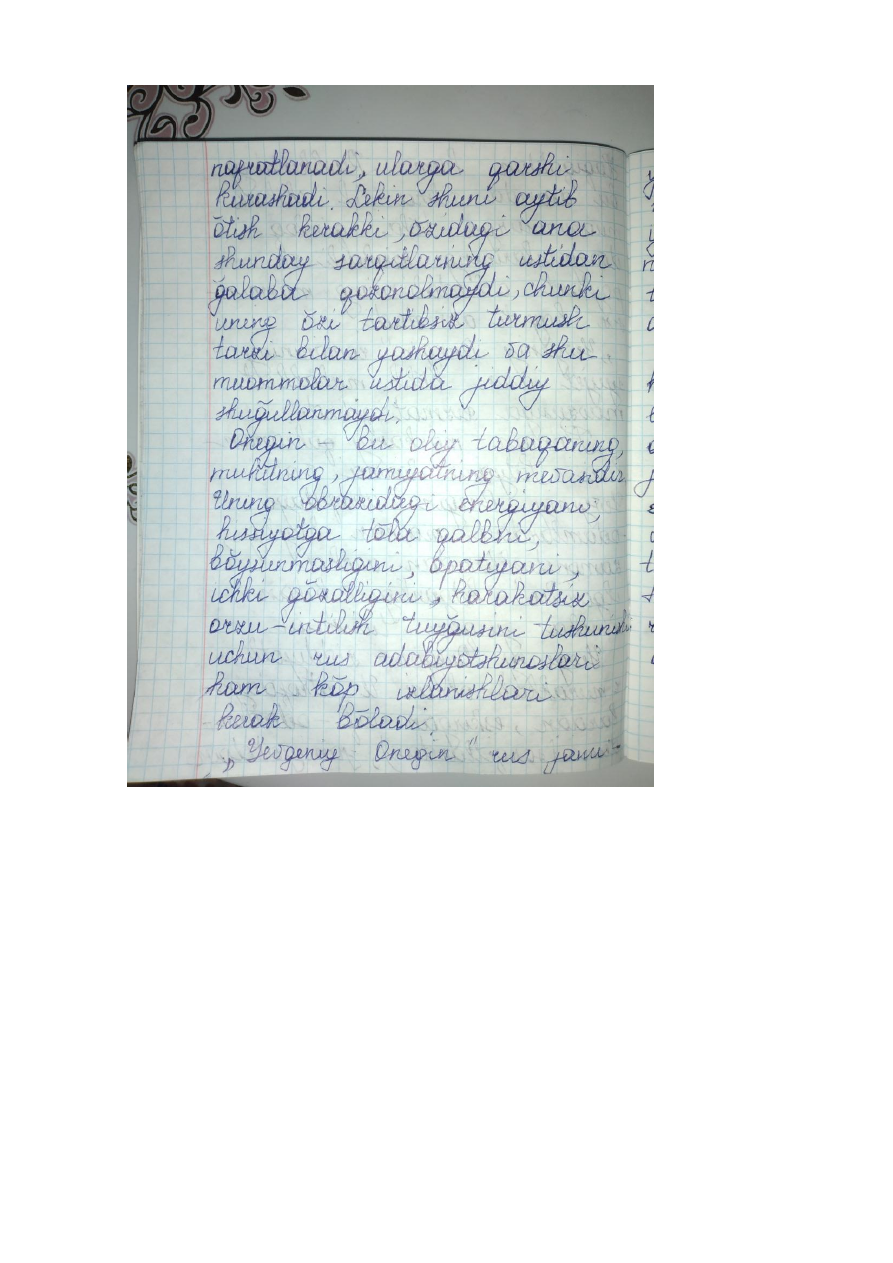 nafratlanadi, ularga qarshi
kurashadi. Lekin shuni aytib
õtish kerakki, õzidagi ana
shunday sarqitlarning ustidan
ğalaba qozonolmaydi, chunki
uning õzi tartibsiz turmush
tarzi bilan yashaydi va shu
muommolar ustida jiddiy
shuğullanmaydi.
Onegin – bu oliy tabaqaning,
muhitning, jamiyatning mevasidir.
Uning obrazidagi energiyani,
hissiyotga tõla qalbni,
bõysunmasligini, apatiyani,
ichki gõzalligini, harakatsiz
orzu-intilish tuyğusini tushunish
uchun rus adabiyotshunoslari
ham kõp izlanishlari
kerak bõladi.
„Yevgeniy Onegin" rus jami-